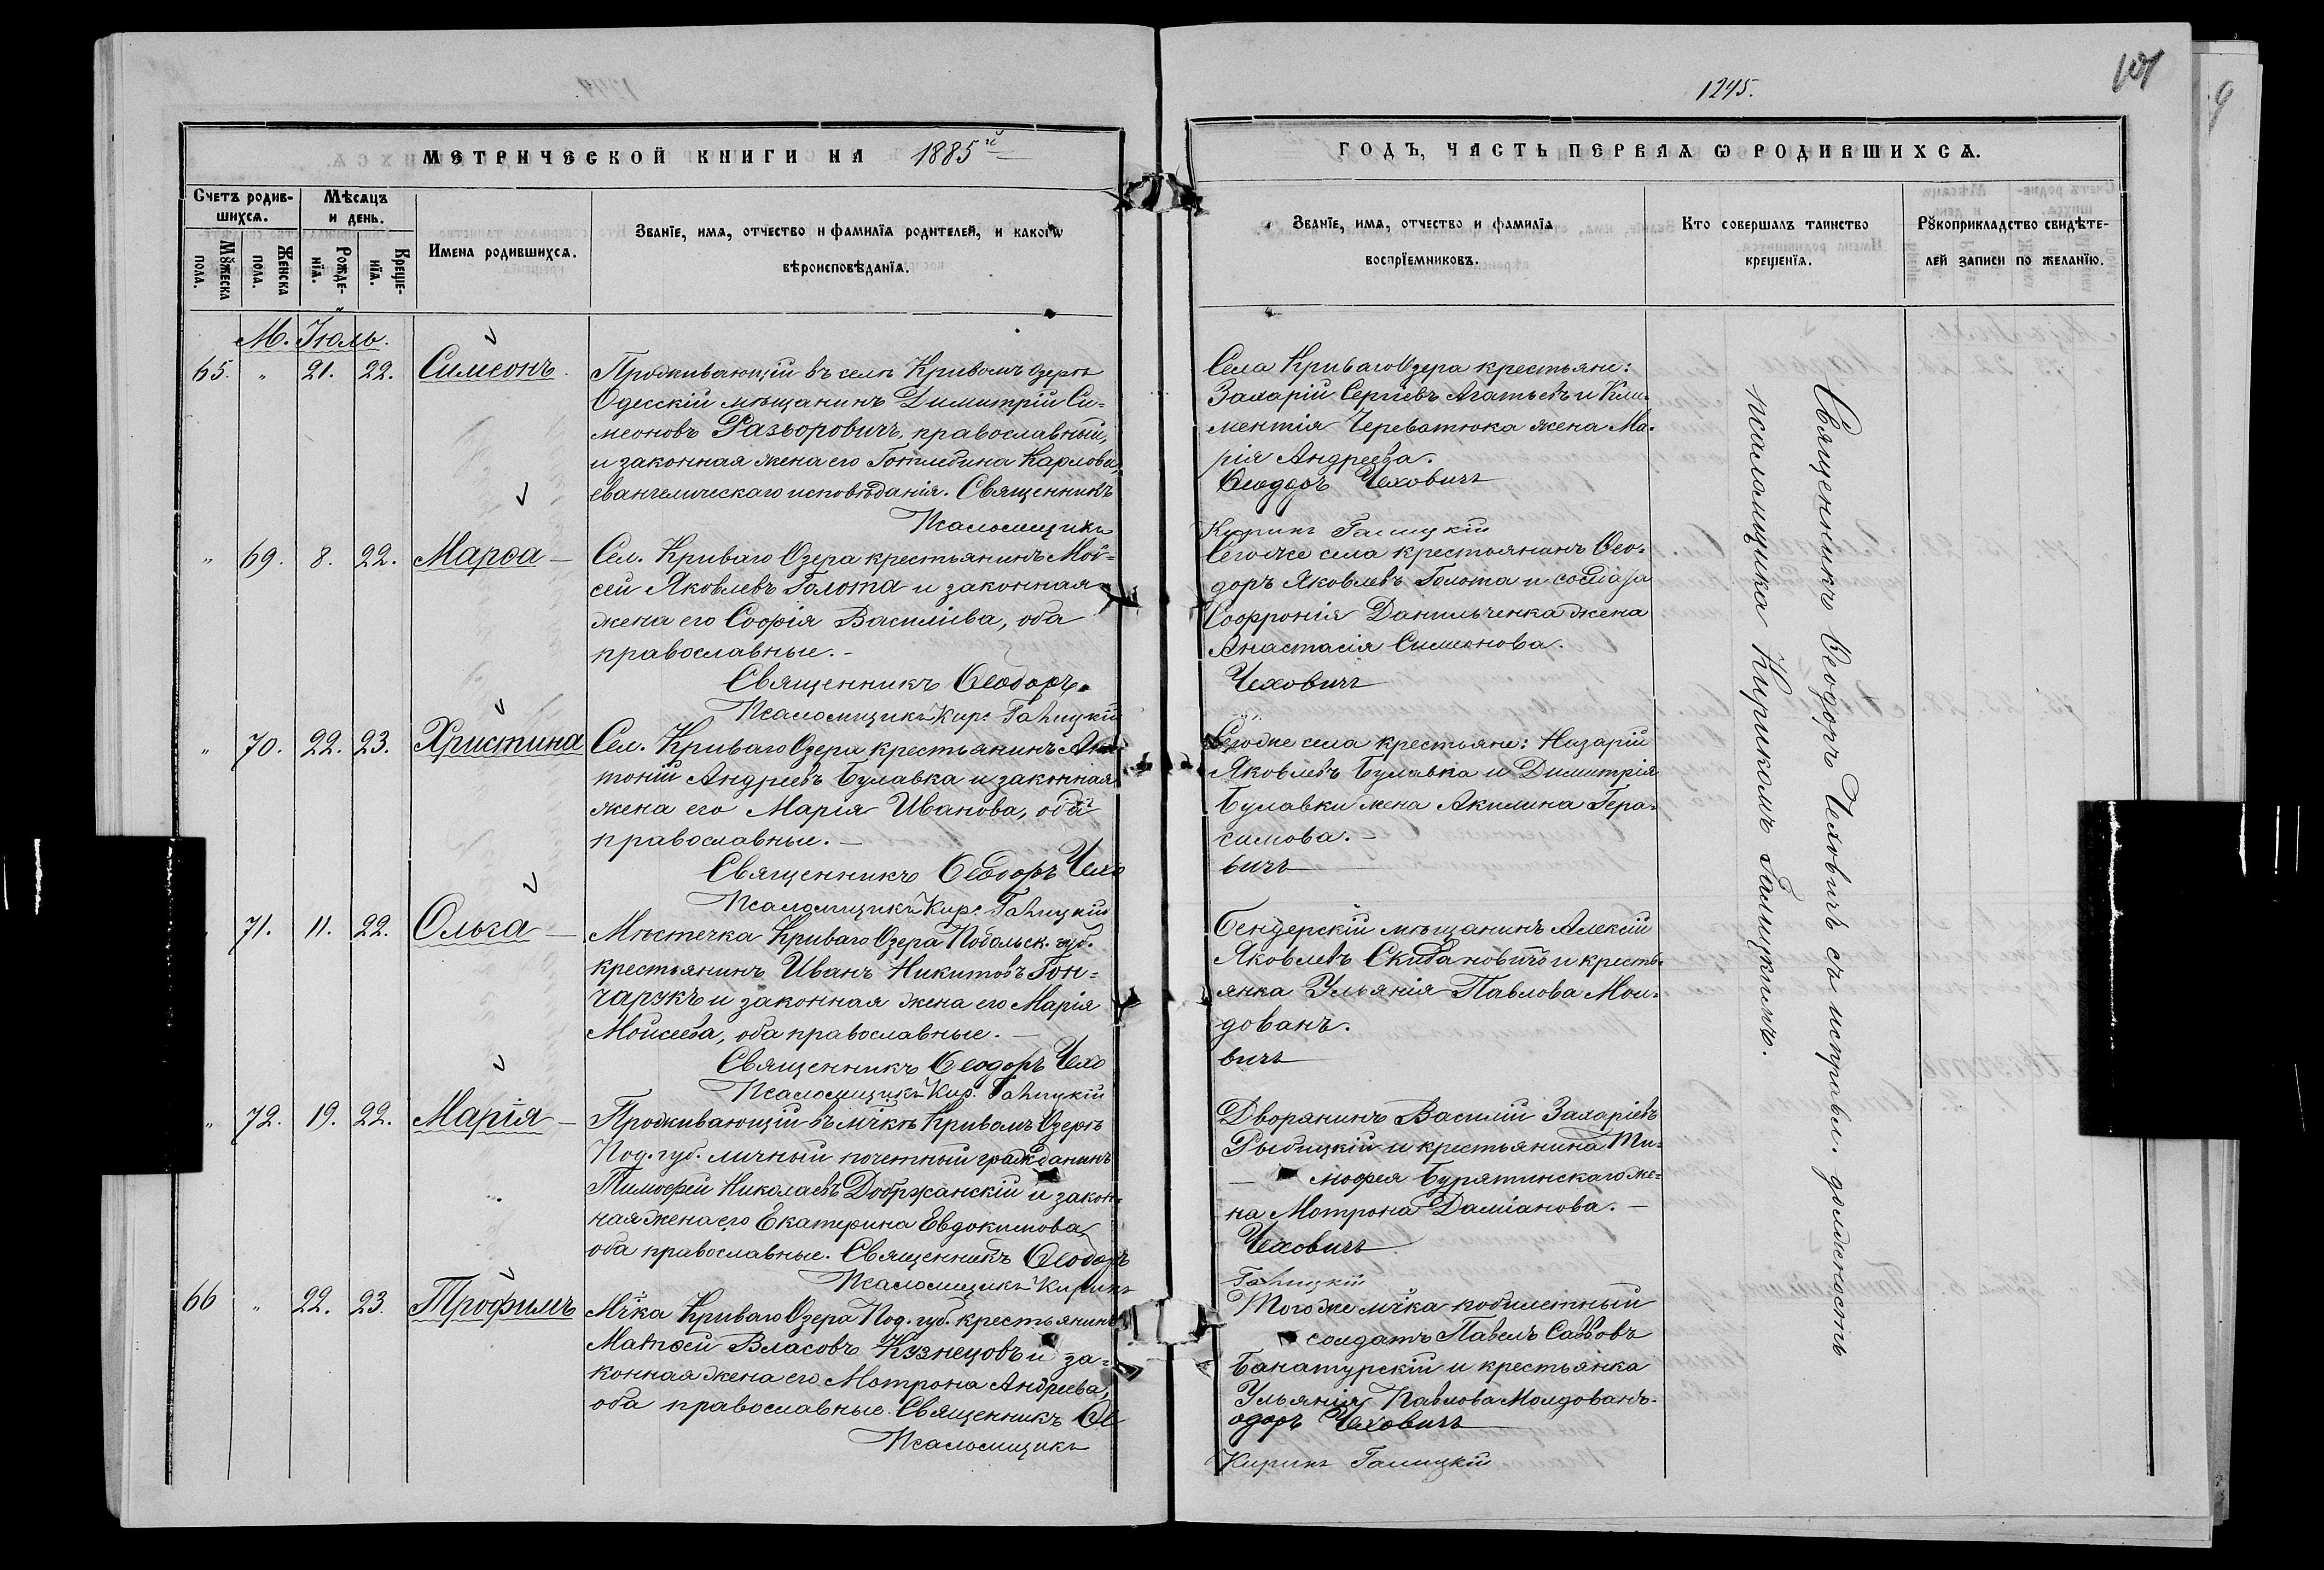 1245.
МЕТРИЧЕСКОЙ КНИГИ НА 1885й
Счетъ родив-
шихсѧ.
Мѣсѧцъ
и день.
Мꙋжеска
пола.
Женска
пола.
Рожде-
нїѧ.
Креще-
нїѧ.
Имена родившихсѧ.
Званїе, имѧ, отчество и фамилїѧ родителей, и какогѡ
вѣроисповѣданїѧ.
М. Іюль.
65. " 21. 22. Симеонъ.
Проживающій въ селѣ Кривомъ Озерѣ
Одесскій мѣщанинъ Димитрій Си-
меоновъ Разьоровичъ, православный,
и законная жена его Готлебина Карлова,
евангелическаго исповѣданія. Священникъ
Псаломщикъ
" 69. 8. 22. Марѳа —
Сел. Криваго Озера крестьянинъ Мой-
сей Яковлевъ Голота и законная
жена его Софія Василіева, оба
православные. -
Священникъ Ѳеодоръ
Псаломщикъ Кир. Галицкій
" 70. 22. 23. Христина
Сел. Криваго Озера крестьянинъ Ан-
тоній Андреевъ Булавка и законная
жена его Марія Иванова, оба
православные. —
Священникъ Ѳеодоръ Чехо
Псаломщикъ Кир. Галицкій
" 71. 11. 22. Ольга —
Мѣстечка Криваго Озера Подольск. губ.
крестьянинъ Иванъ Никитовъ Гон-
чарукъ и законная жена его Марія
Мойсеева, оба православные. —
Священникъ Ѳеодоръ Чехо
Псаломщикъ Кир. Галицкій
" 72. 19. 22. Марія —
Проживающій въ м҃чкѣ Кривомъ Озерѣ
Под. губ. личный почетный гражданинъ
Тимоѳей Николаевъ Добржанскій и закон-
ная жена его Екатерина Евдокимова
оба православные. Священникъ Ѳеодоръ
Псаломщикъ Кирикъ
66 " 22. 23. Трофимъ
М҃чка Криваго Озера Под. губ. крестьянинъ
Матѳей Власовъ Кузнецовъ и за-
конная жена его Мотрона Андреева,
оба православные. Священникъ Ѳе
Псаломщикъ
ГОДЪ, ЧАСТЬ ПЕРВАѦ Ѡ РОДИВШИХСѦ.
Званїе, имѧ, отчество и фамилїѧ
воспрїемниковъ.
Кто совершалъ таинство
крещенїѧ.
Рꙋкоприкладство свидѣте-
лей записи по желанїю.
Села Криваго Озера крестьяне:
Захарій Сергіевъ Агатьевъ и Кли-
ментія Череватюка жена Ма-
рія Андреева.
Ѳеодоръ Чеховичъ
Кирикъ Галицкій
Тогоже села крестьянинъ Ѳео-
доръ Яковлевъ Голота и солдата
Софронія Данильченка жена
Анастасія Симеонова.
Чеховичъ
Тогоже села крестьяне: Назарій
Яковлевъ Булавка и Димитрія
Булавки жена Акилина Гера-
симова. —
вичъ
Бендерскій мѣщанинъ Алексій
Яковлевъ Скибановичъ и кресть-
янка Ульянія Павлова Мол-
дованъ.
вичъ
Дворянинъ Василій Захаріевъ
Рыбицкій и крестьянина Ти-
— мофея Бурятинскаго же-
на Мотрона Даміанова. —
Чеховичъ
Галицкій
Тогоже м҃чка кобилетный
солдатъ Павелъ Саввовъ
Банатурскій и крестьянка
Ульянія Павлова Молдованъ.
одоръ Чеховичъ
Кирикъ Галицкій
Священникъ Ѳеодоръ Чеховичъ съ исправл. должность
псаломщика Кирикомъ Галицкимъ.